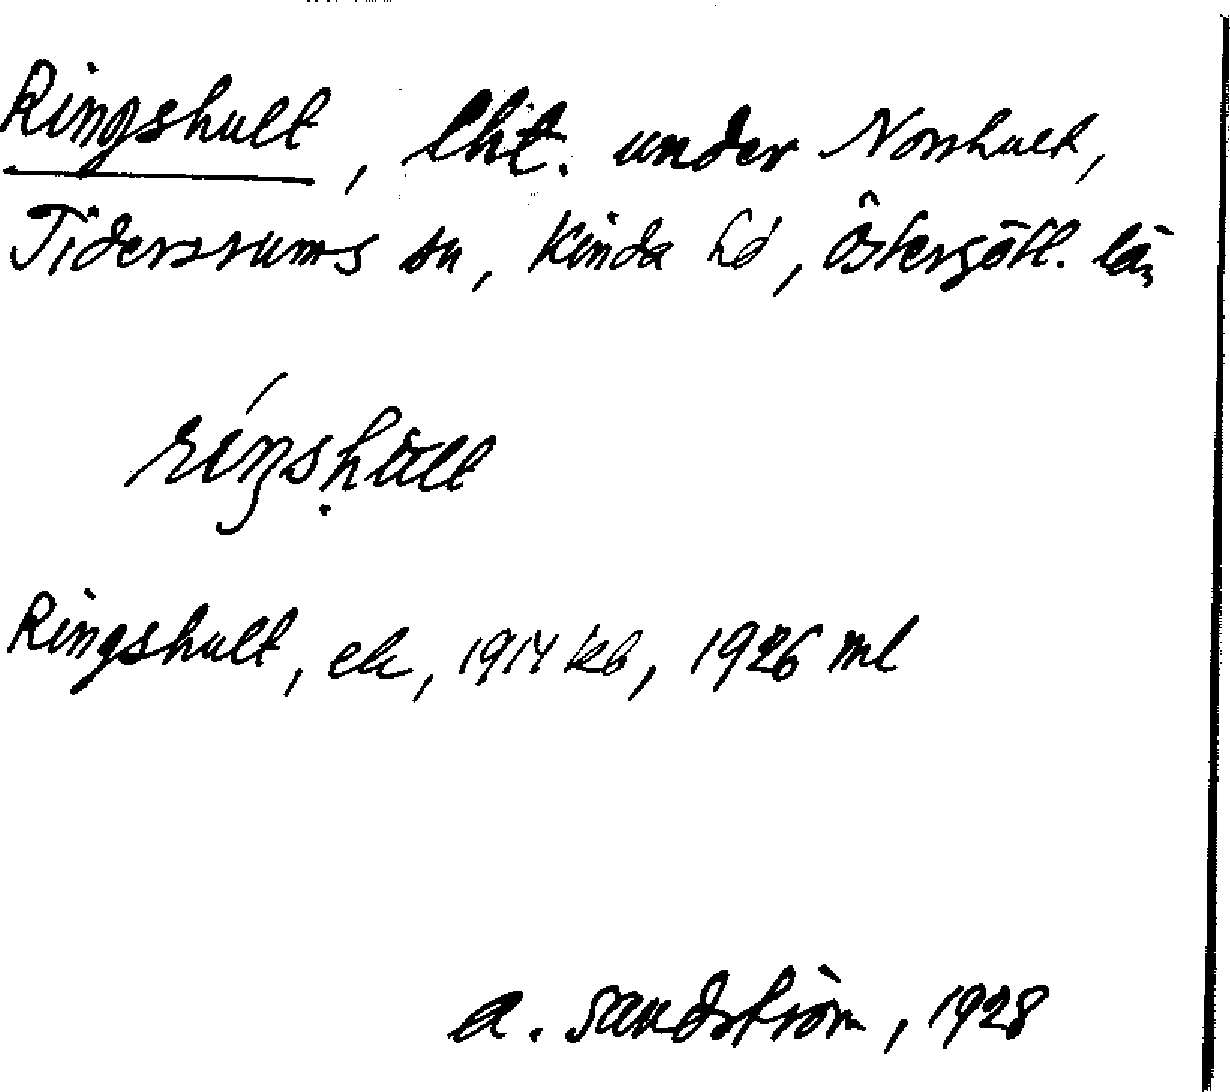 Ringshult, lht. under Norrhult,
Tidersrums sn, Kinda hd, Östergötl. län
ríŋsḥult
Ringshult, ek, 1914 kb, 1926 ml
A. Sandström, 1928